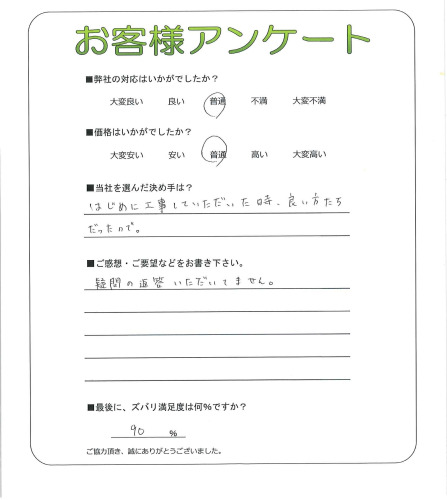 お客様アンケート
■弊社の対応はいかがでしたか?
大変良い 良い 普通 不満 大変不満
■価格はいかがでしたか?
大変安い 安い 普通 高い 大変高い
■当社を選んだ決め手は?
はじめに工事していただいた時、良い方たち
だったので。
■ご感想・ご要望などをお書き下さい。
疑問の返答いただいてません。
■最後に、ズバリ満足度は何%ですか?
90 %
ご協力頂き、誠にありがとうございました。